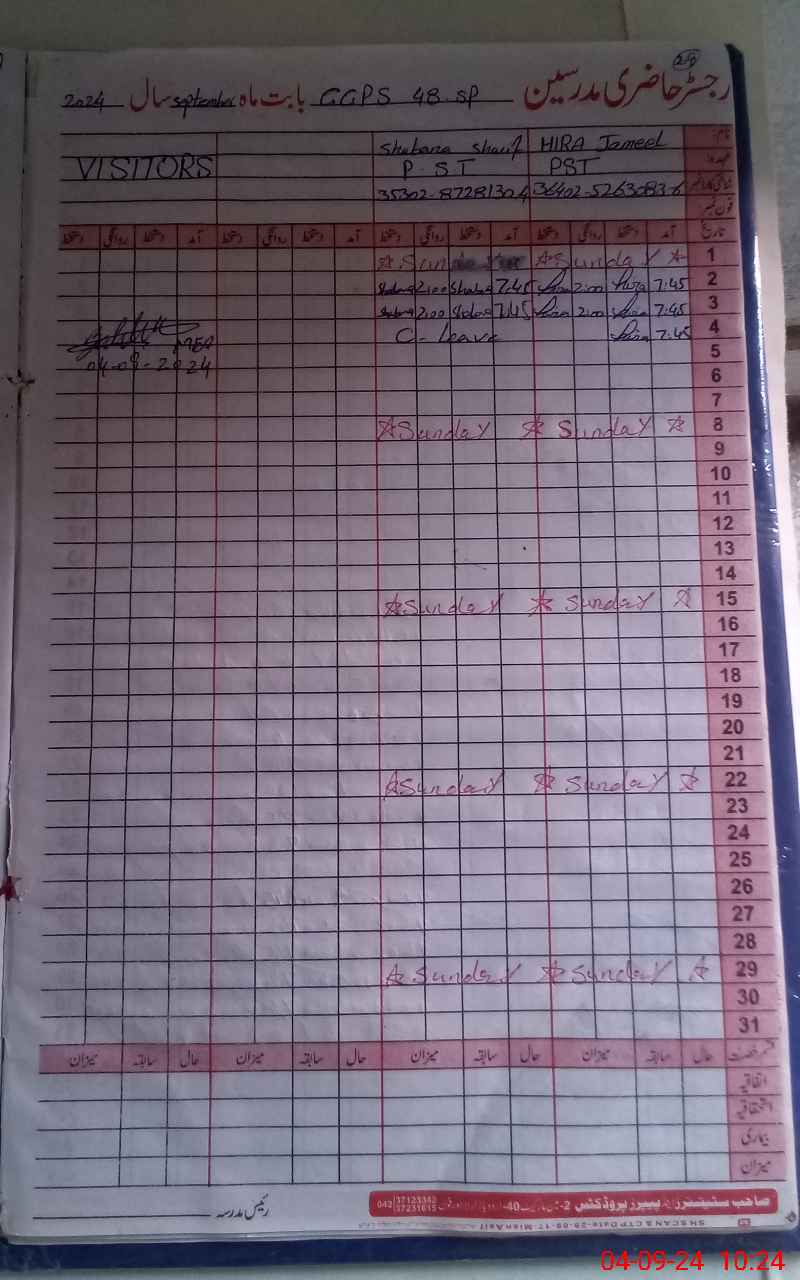 رجسٹر حاضری مدرسین GGPS 48.SP بابت ماہ September سال 2024
نام: HIRA Jameel Shabana Sharif
عہدہ: PST P.S.T VISITORS
36402-5263083-6 35302-8728130
فون نمبر
تاریخ آمد دستخط روانگی دستخط آمد دستخط روانگی دستخط آمد دستخط روانگی دستخط آمد دستخط روانگی دستخط
1 ☆ Sunday ☆ Sun
2 7:45 Hira 2:00 Hira 7:45 Shabana 2:00 Shabana
3 7:45 Hira 2:00 Hira 7:45 Shabana 2:00 Shabana
4 7:45 Hira C-leave
5 04-09-2024
6
7
8 ☆ Sunday ☆ Sunday ☆
9
10
11
12
13
14
15 ☆ Sunday ☆ Sunday ☆
16
17
18
19
20
21
22 ☆ Sunday ☆ Sunday ☆
23
24
25
26
27
28
29 ☆ Sunday ☆ Sunday ☆
30
31
قسم رخصت حال سابقہ میزان حال سابقہ میزان حال سابقہ میزان حال سابقہ میزان
اتفاقیہ
استحقاقیہ
بیماری
میزان
رئیس مدرسہ
صاحب سٹیشنرز اینڈ پیپرز پروڈکٹس 042 37123342 37231615
04-09-24 10:24